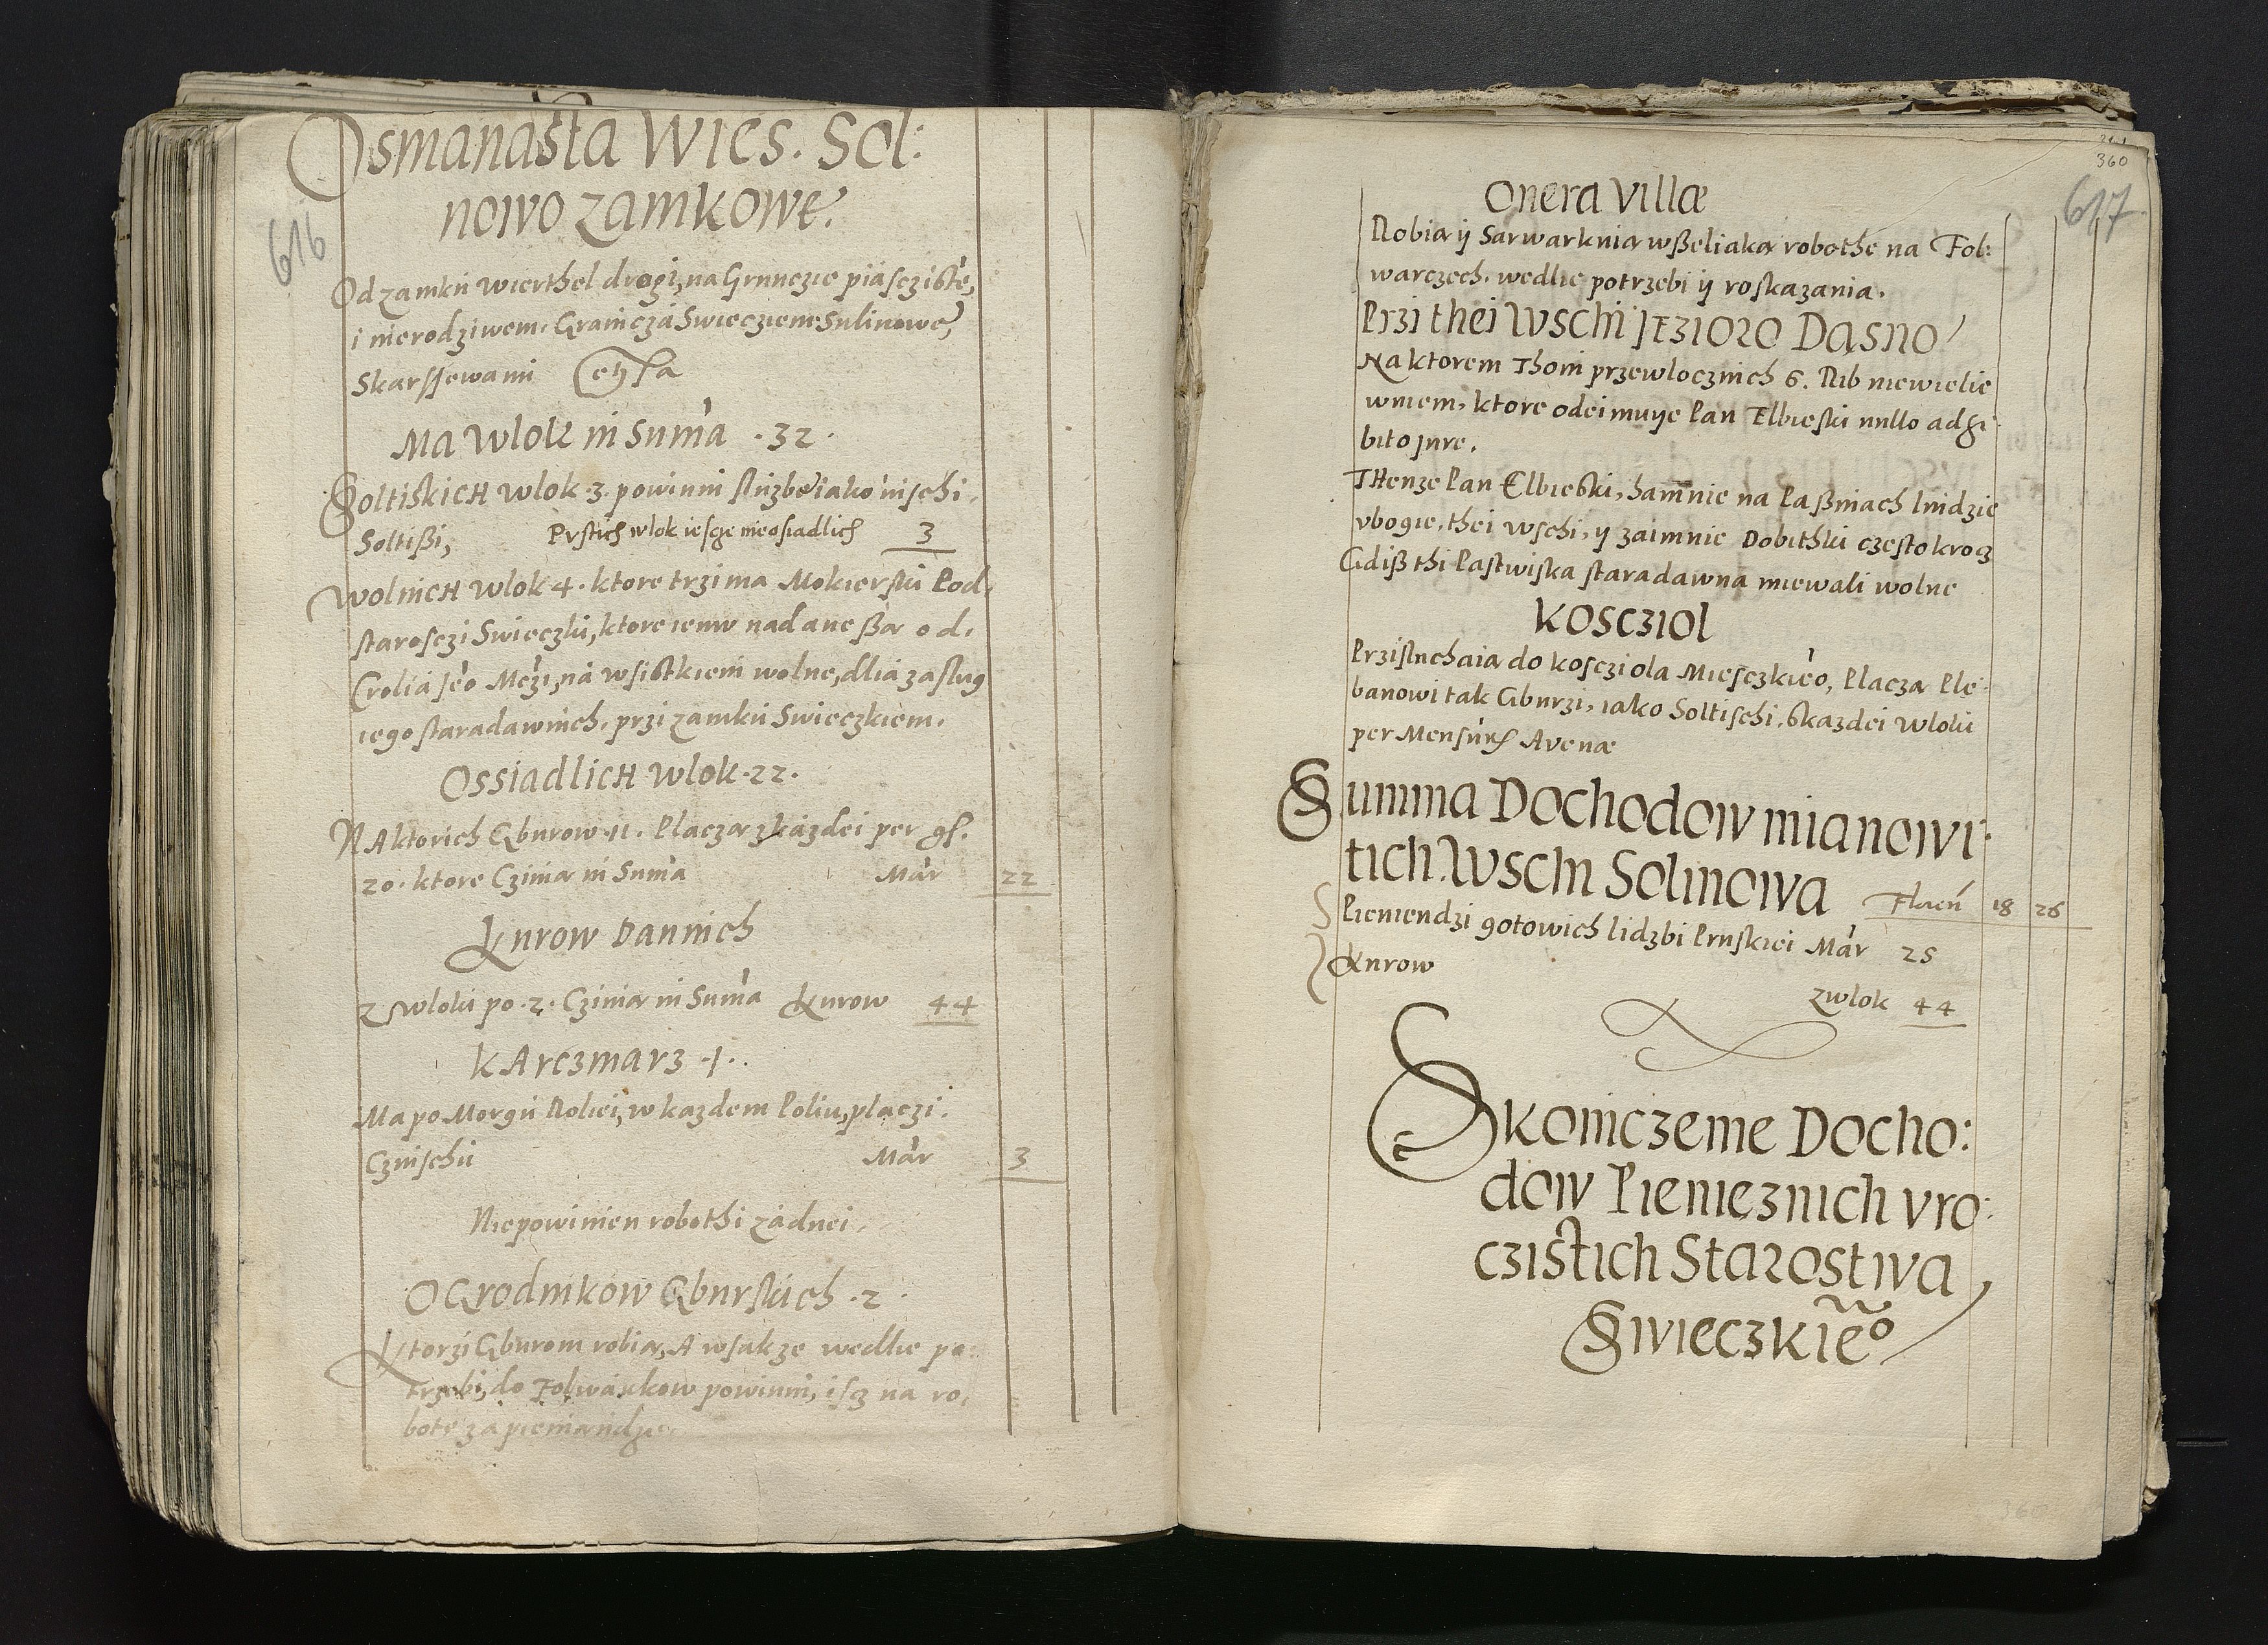 Osmanasta Wies. Sol:
nowo zamkowe.
616
Od zamku wierthel drogi, na Grunczie piasczistem,
i nierodziwem. Graniczą Swiecziem Sulinowem,
Skarssewami etc
Ma Wlok in Suma .32.
Soltiskich wlok .3. powinni służbę iako inschi
Soltißi, Pustich wlok iescze nieosiadlich 3
Wolnich wlok 4. ktore trzima Mokierski Pod
starosczi Swieczki, ktore iemu nadane ßą od.
Crolia Jeo Mczi, na wsistkiem wolne, dlia zasług
iego staradawnich. przi zamku Swieczkiem.
Ossiadlich Wlok .22.
Na ktorich Gburow .11. Placzą z każdei per gl.
20. ktore Czinią in Suma Mar 22
Kurow Dannich
Z wloki po .2. Czinią in Suma Kurow 44
Karczmarz .1.
Ma po Morgu Roliei, w kazdem Poliu, placzi.
Czinschu Mar 3
Niepowinien robothi żadnei
Ogrodnikow Gburskich .2.
Ktorzi Gburom robią, A wsakze wedlie po:
trzebi, do Folwarkow powinni, iscz na ro.
botę za pieniandze.
360
617
Onera Villæ
Robią ij Sarwarknią wßeliaką robothę na Fol:
warczech. wedlie potrzebi ij roskazania.
Przi thei Wschi Jezioro Dąsno
Na ktorem Thoni przewlocznich 6. Rib niewielie
w niem, ktore odeimuye Pan Elbieski nullo adhi
bito jure.
Thenze Pan Elbieski, hamuie na Paßniach luidzie
vbogie, thei wschi, ij zaimuie Dobithki częstokrocz
Gdiß thi Pastwiska staradawna miewali wolne
Kosczioł
Przisluchaią do kosczioła Miesczkieo, Placzą Ple
banowi tak Gburzi, iako Soltischi. skazdei Wloki
per Mensuram Avenæ
Summa Dochodow mianowi
tich. Wschi Solinowa Floren 18 26
Pieniendzi gotowich lidzbi Pruskiei Mar 25
Kurow
z wlok 44
Skoniczenie Docho:
dow Pienieznich vro:
czistich Starostwa
Swieczkieo
360